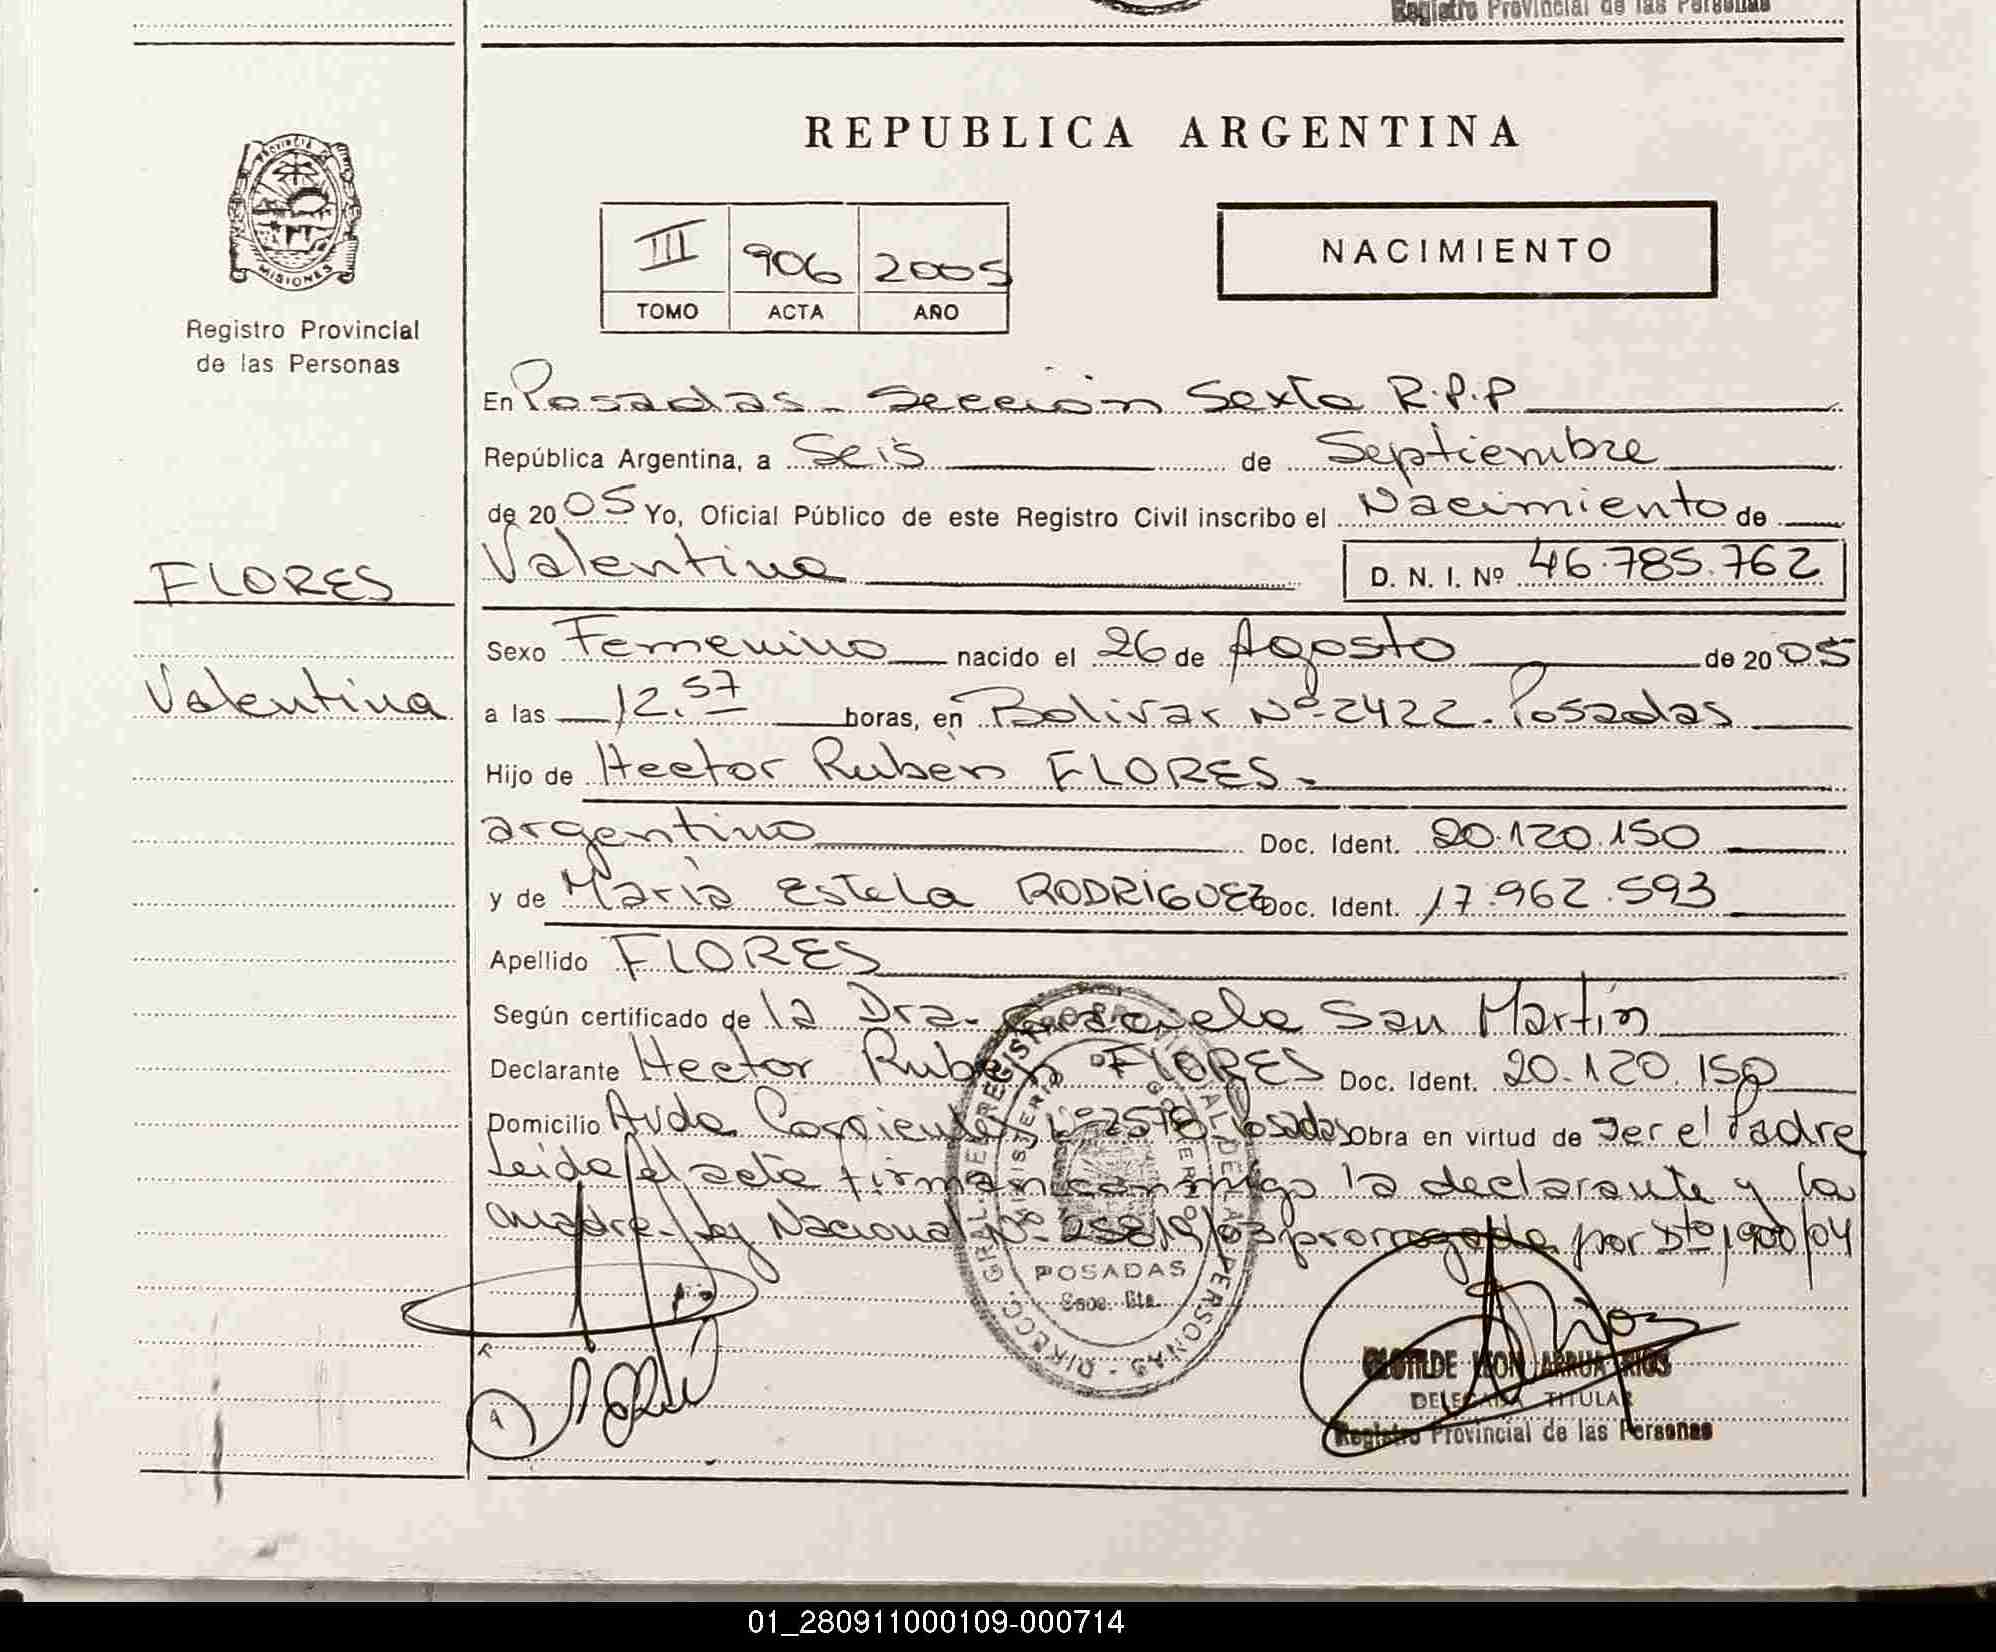 Registro Provincial de las Personas
REPUBLICA ARGENTINA
PROVINCIA DE
MISIONES
Registro Provincial
de las Personas
III 906 2005
TOMO ACTA AÑO
NACIMIENTO
En Posadas - Sección Sexta R.P.P
República Argentina, a Seis de Septiembre
de 2005 Yo, Oficial Público de este Registro Civil inscribo el Nacimiento de
FLORES
Valentina
Valentina D. N. I. Nº 46.785.762
Sexo Femenino nacido el 26 de Agosto de 2005
a las 12.57 horas, en Bolivar Nº 2422 - Posadas
Hijo de Hector Rubén FLORES -
argentino Doc. Ident. 20.120.150
y de María Estela RODRÍGUEZ Doc. Ident. 17.962.593
Apellido FLORES
Según certificado de la Dra. San Martín
Declarante Hector Rubén FLORES Doc. Ident. 20.120.150
Domicilio Avda Corrientes Nº 2578 Posadas Obra en virtud de Ser el Padre
Leida el acta firman conmigo la declarante y la
madre - ley Nacional Nº 25819/03 prorrogada por Dto 1900/04
DIRECC. GRAL. DE REGISTRO PROVINCIAL DE LAS PERSONAS
MINISTERIO DE GOBIERNO
POSADAS
Secc. 6ta.
CLOTILDE LEON ARRUA RIOS
DELEGADA TITULAR
Registro Provincial de las Personas
01_280911000109-000714